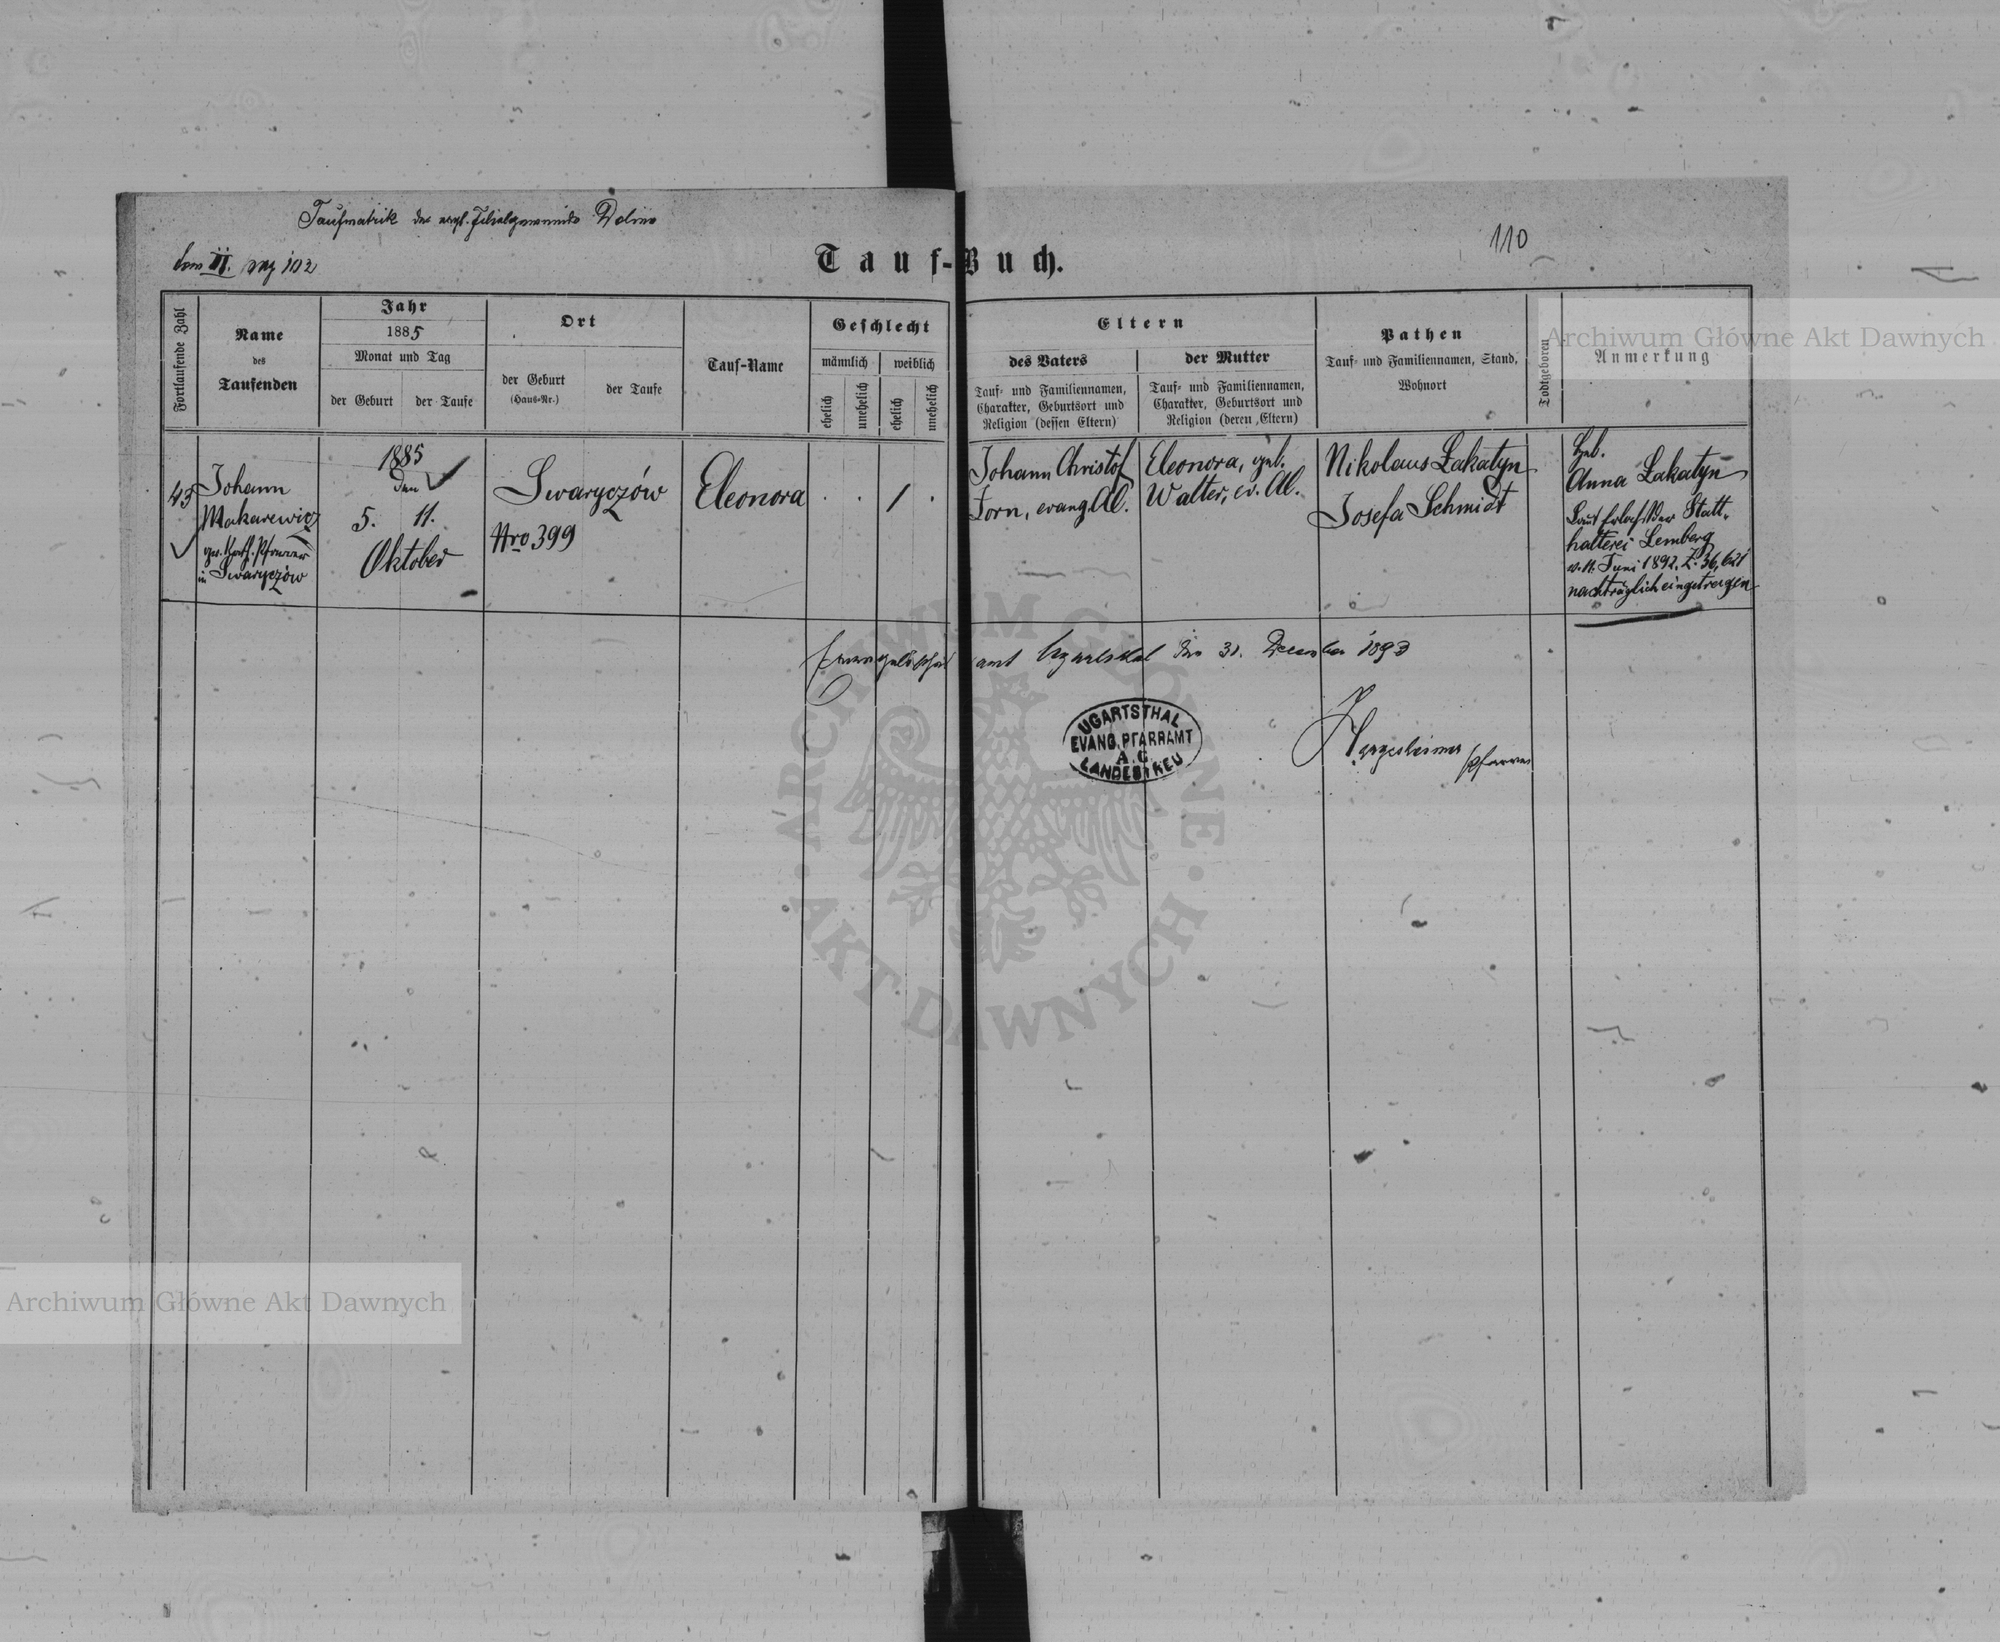 Taufmatrik der evgl. Filialgemeinde Dolina
110
Tom II. pag 102
Tauf-Buch.
Fortlaufende Zahl
Name
des
Taufenden
Jahr
1885
Monat und Tag
der Geburt
der Taufe
Ort
der Geburt
(Haus-Nr.)
der Taufe
Tauf-Name
Geschlecht
männlich
weiblich
ehelich
unehelich
ehelich
unehelich
Eltern
des Vaters
Tauf- und Familiennamen,
Charakter, Geburtsort und
Religion (dessen Eltern)
der Mutter
Tauf- und Familiennamen,
Charakter, Geburtsort und
Religion (deren Eltern)
Pathen
Tauf- und Familiennamen, Stand,
Wohnort
Todtgeboren
Anmerkung
43
Johann
Makarewicz
gr. kath. Pfarrer
in Swaryczów
1885
den
5. 11.
Oktober
Swaryczów
Nro 399
Eleonora
Johann Christof
Zorn, evang. AC.
Eleonora, geb.
Walter, ev. AC.
Nikolaus Lakatyn
Josefa Schmidt
Heb.
Anna Lakatyn
Laut Erlaß der Statt-
halterei Lemberg
v. 11. Juni 1892, Z.
nachträglich eingetragen
Evangelisches Pfarramt Ugartsthal den 31. December 1893
UGARTSTHAL
EVANG. PFARRAMT
A. C.
LANDESTREU
Pfarrer
Archiwum Główne Akt Dawnych
ARCHIWUM GŁÓWNE AKT DAWNYCH
Archiwum Główne Akt Dawnych